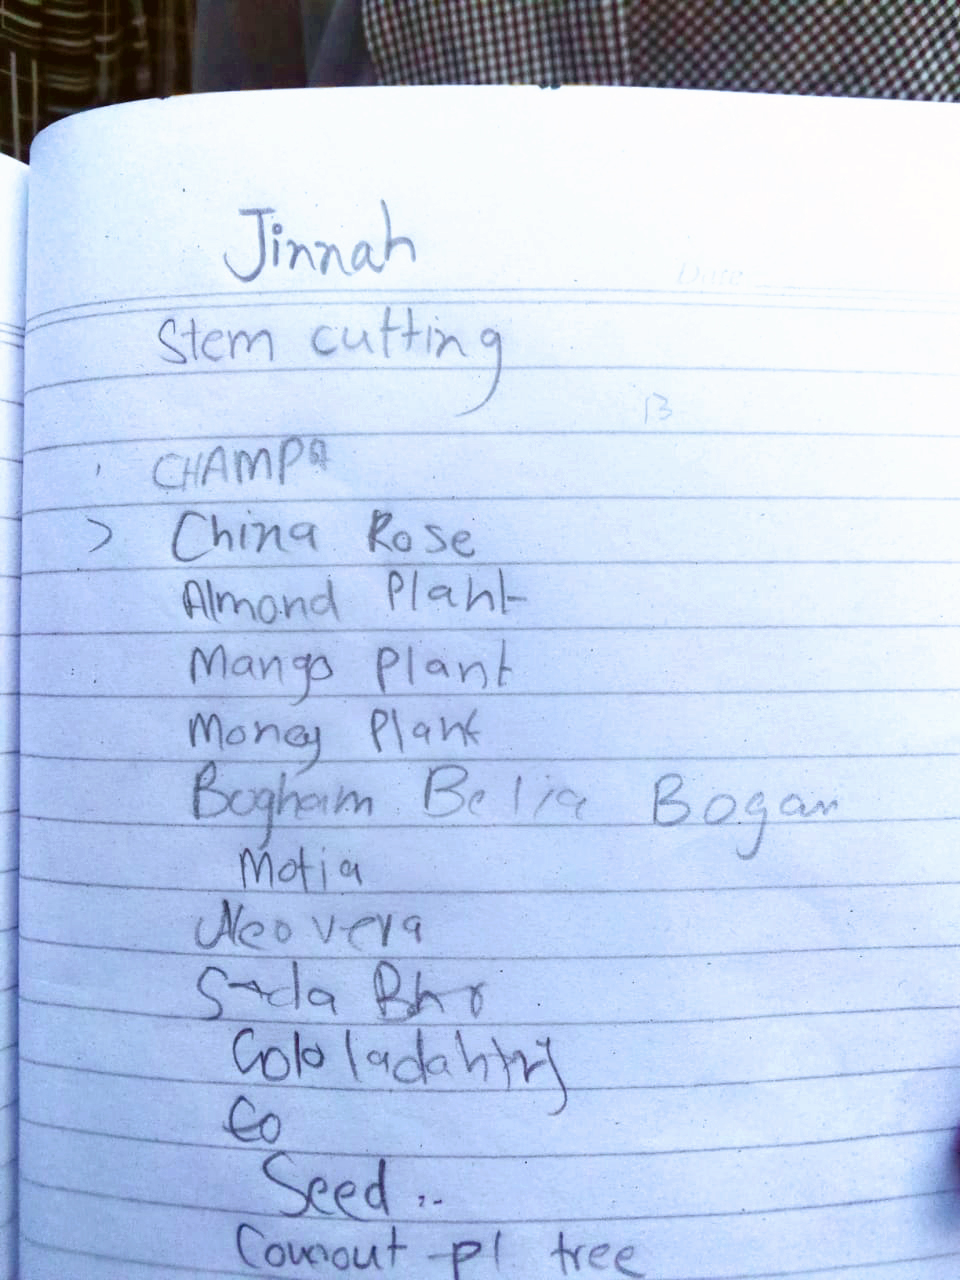 Jinnah
Date
Stem cutting
13
CHAMPA
> China Rose
Almond Plant
Mango Plant
Money Plant
Bogham Belia Bogan
Motia
Aleo vera
Sada Bhr
Eo
Seed ..
tree